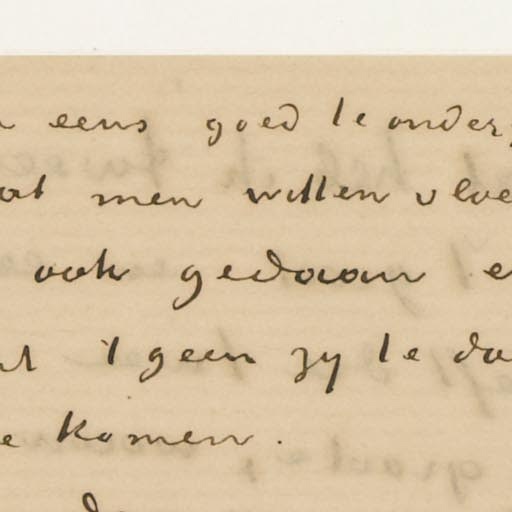 eens goed te onder
men willen vloe
ook gedaan e
't geen zy te da
te komen.